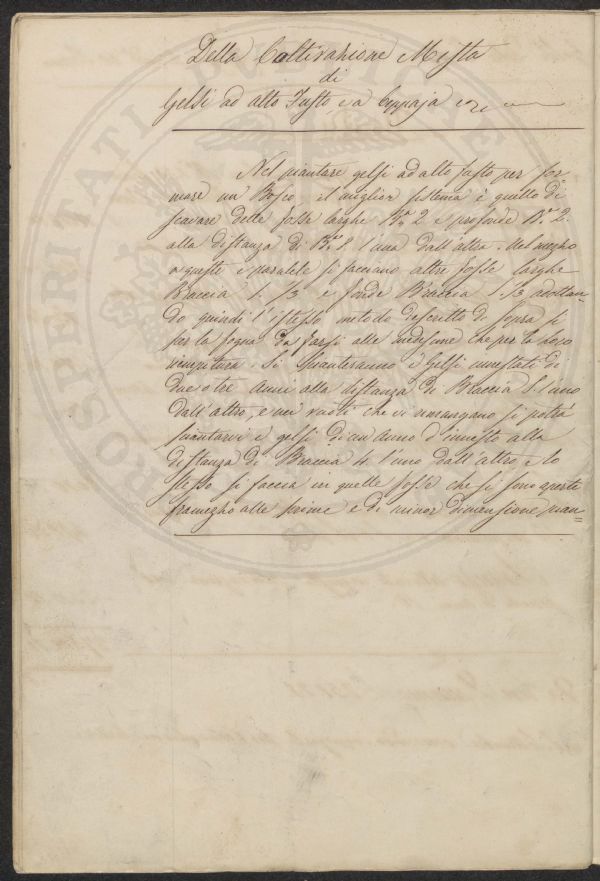 Della Coltivazione Mista
di
Gelsi ad alto Fusto, e a Ceppaja
Nel piantare gelsi ad alto fusto per for=
mare un Bosco, il miglior sistema è quello di
scavare delle fosse larghe B.a 2 e profonde B.a 2
alla distanza di B.a 8. l'una dall'altra. Nel mezzo
a queste e paralele si facciano altre fosse larghe
Braccia 1. 1/3 e fonde Braccia 1. 1/3 adottan=
do quindi l'istesso metodo descritto di sopra sì
per la fogna da farsi alle medesime che per la loro
riempitura. Si pianteranno i Gelsi innestati di
due o tre Anni alla distanza di Braccia 8. l'uno
dall'altro, e nei vuoti che vi rimangano si potrà
piantarvi i gelsi di un Anno d'innesto alla
distanza di Braccia 4. l'uno dall'altro, e lo
stesso si faccia in quelle fosse che si sono aperte
framezzo alle prime e di minor dimensione pian=
PROSPERITATI PUBLICAE